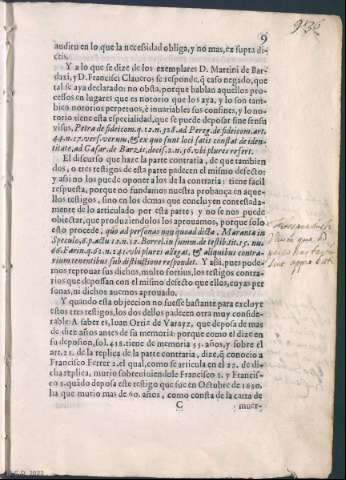 9
audireu en lo que la necessidad obliga, y no mas, ex supra dictis.
Y a lo que se dize de los exemplares D. Martini de Bardaxi, y D. Francisci Claueros: se responde, q̃ caso negado, que
tal se aya declarado: no obsta, porque hablan aquellos processos en lugares que es notorio que los aya, y lo son tambien notorios perpetuos, è inuariables sus confines, y lo notorio tiene esta especialidad, que se puede deposar sine sensu
visus, Petra de fideicom. q. 12. n. 528. ad Pereg. de fideicom. art.
44. n. 17. vers. verum, & ex quo sunt loci satis constat de identitate, ad Casar. de Barzis, decis. 2. n. 36. vbi plures refert.
El discurso que haze la parte contraria, de que tambien
dos, o tres testigos de esta parte padecen el mismo defecto:
y assi no los puede oponer a los de la contraria: tiene facil
respuesta, porque no fundamos nuestra probança en aquellos testigos, sino en los demas que concluyen contestadamente de lo articulado por esta parte; y no se nos puede
obiectar, que produziendolos los aprouamos, porque solo
esto procede, quò ad personas non quoad dicta, Maranta in
Speculo, 6. p. actu 12. n. 12. Borrel. in summ. de testib. tit. 15. nu.
66. Farin. q. 62. n. 241. vbi plures allegat, & aliquibus contrarium tenentibus sub distinctione respondet. Y assi, pues podemos reprouar sus dichos, multo fortius, los testigos contrarios que deposan con el mismo defecto que ellos, cuyas personas, ni dichos auemos aprouado.
Y quando esta objeccion no fuesse bastante para excluyr
estos tres testigos, los dos dellos padecen otra muy considerable: A saber es, Iuan Ortiz de Varayz, que deposa de mas
de diez años antes de su memoria: porque como el dize en
su deposicion, fol. 218. tiene de memoria 55. años, y sobre el
art. 21. de la replica de la parte contraria, dize, q̃ conocio a
Francisco Ferrer 2. el qual, como se articula en el 22. de dicha replica, murio sobreuiuiendole Francisco 2. y Francisco 3. quãdo deposa este testigo que fue en Octubre de 1650.
ha que murio mas de 60. años, como consta de la carta de
C muer-